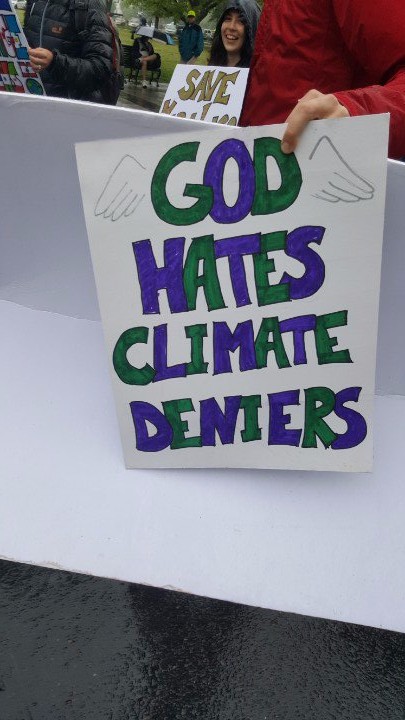 SAVE
GOD
HATES
CLIMATE
DENIERS